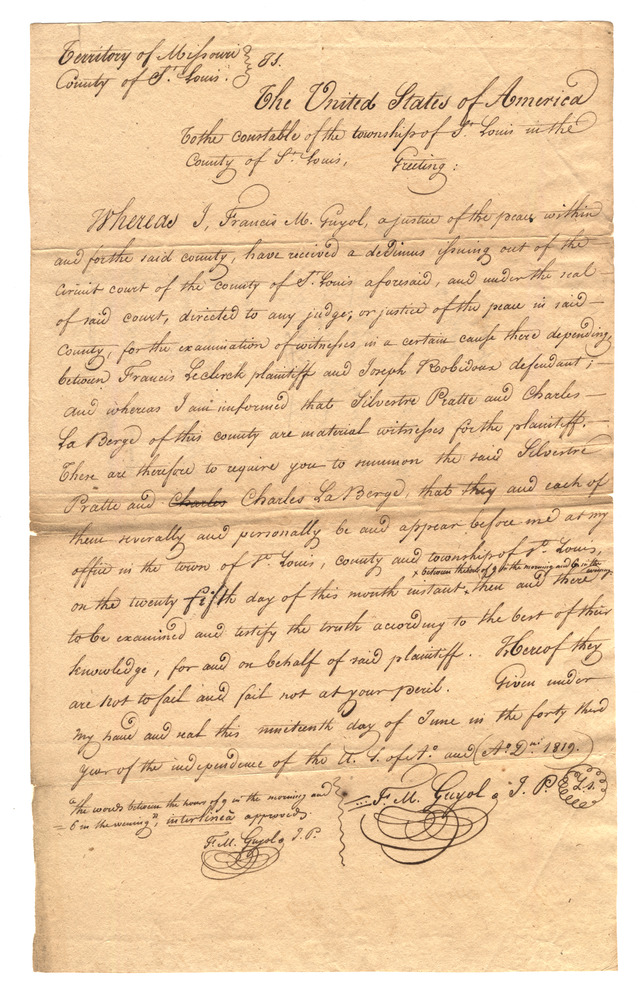 Territory of Missouri } SS.
County of St. Louis.
The United States of America
To the constable of the township of St. Louis in the
County of St. Louis, Greeting:
Whereas I, Francis M. Guyol, a justice of the peace within
and for the said county, have received a dedimus issuing out of the
circuit court of the county of St. Louis aforesaid, and under the seal
of said court, directed to any judge, or justice of the peace in said
County, for the examination of witnesses in a certain cause there depending
between Francis Leclerck plaintiff and Joseph Robidoux defendant;
and whereas I am informed that Silvestre Pratte and Charles
La Berge of this county are material witnesses for the plaintiff.
These are therefore to require you to summon the said Silvestre
Pratte and Charles Charles La Berge, that they and each of
them severally and personally be and appear before me at my
office in the town of St. Louis, county and township of St. Louis,
x between the hours of 9 in the morning and 6 in the evening
on the twenty fifth day of this month instant x then and there
to be examined and testify the truth according to the best of their
knowledge, for and on behalf of said plaintiff. Hereof they
are not to fail and fail not at your peril. Given under
my hand and seal this nineteenth day of June in the forty third
year of the independence of the U. S. of Aa. and (Ao. Dni. 1819.)
F. M. Guyol J. P. L.S.
"the words between the hours of 9 in the morning and
6 in the evening", interlined approved.
F. M. Guyol J. P.